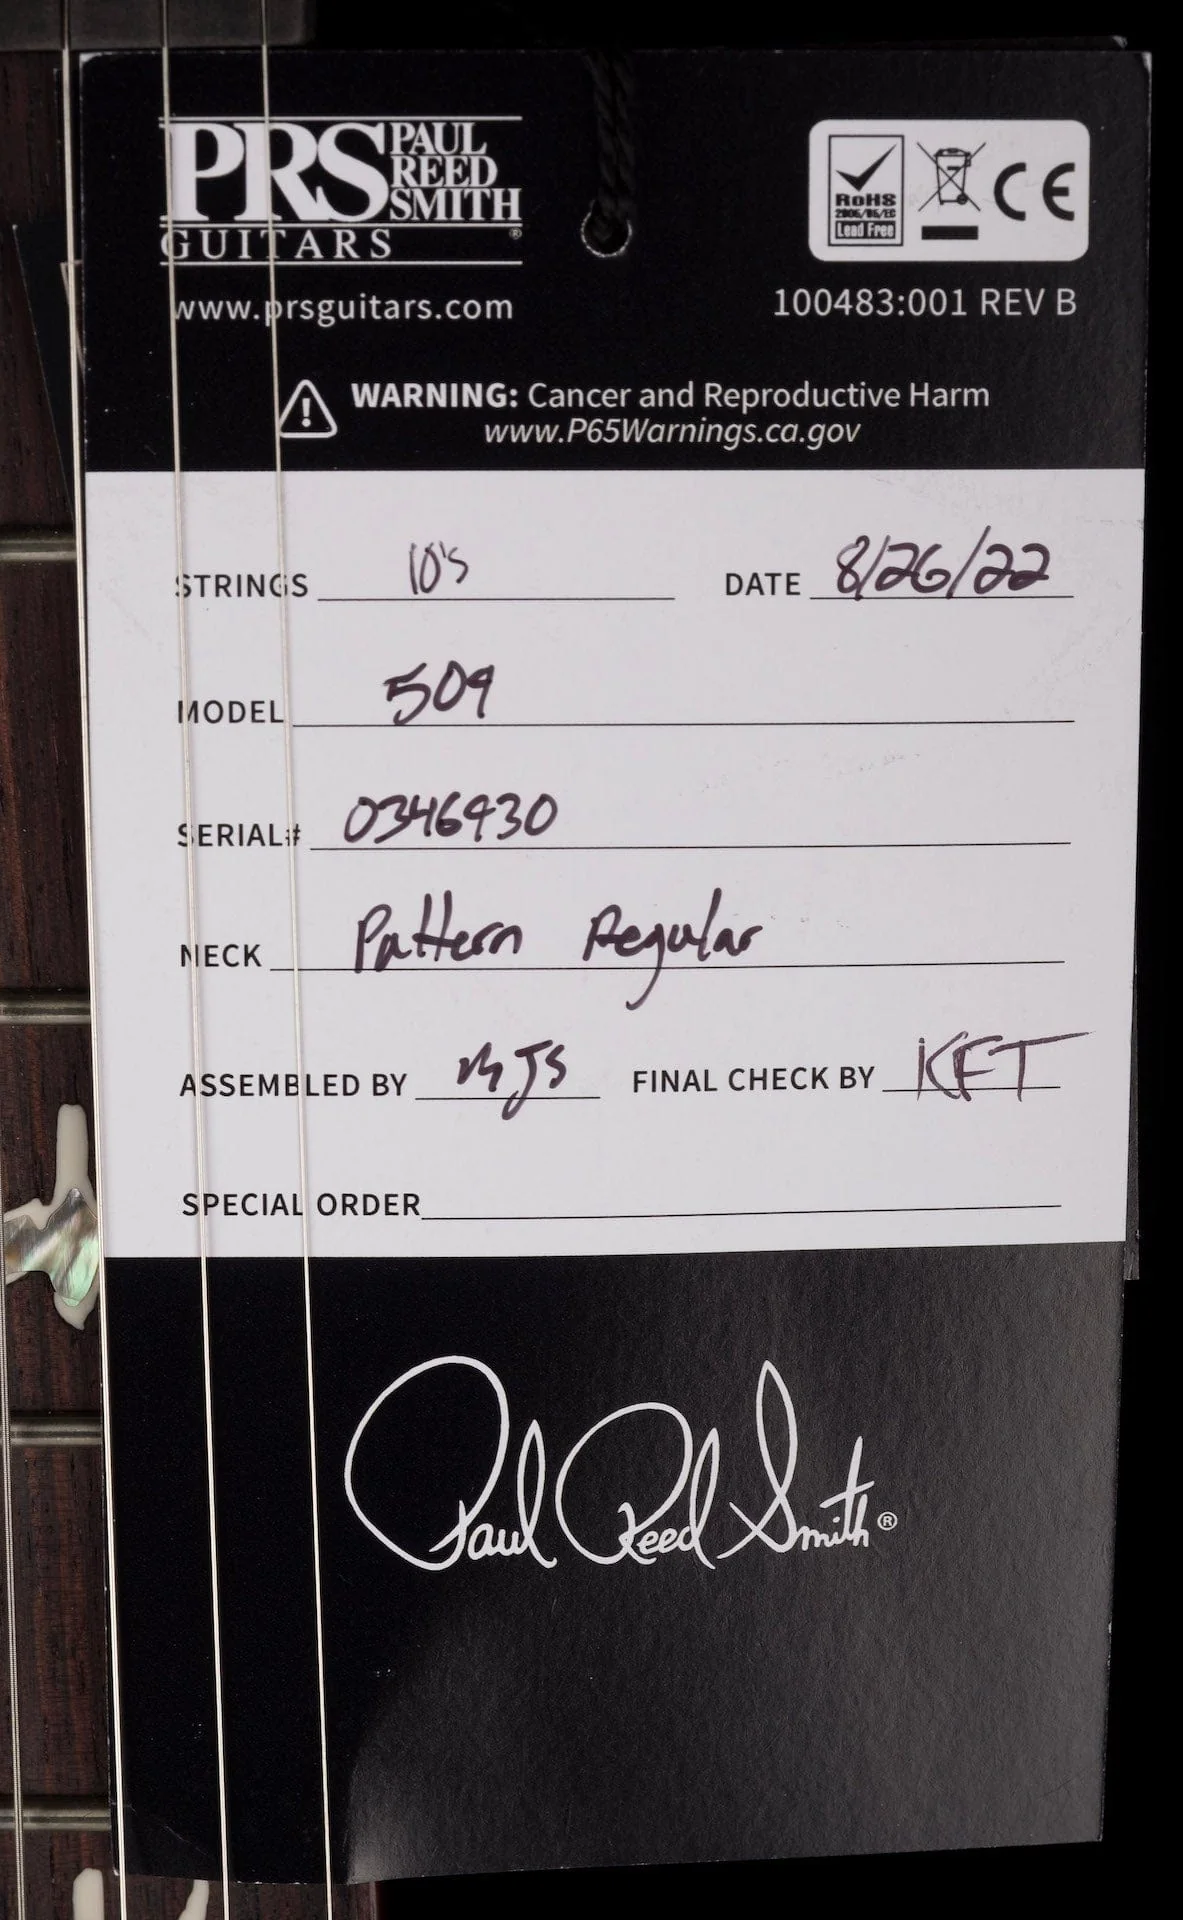 PRS PAUL REED SMITH
GUITARS ®
www.prsguitars.com
RoHS
2005/95/EC
Lead Free
CE
100483:001 REV B
WARNING: Cancer and Reproductive Harm
www.P65Warnings.ca.gov
STRINGS 10's DATE 8/26/22
MODEL 509
SERIAL# 0346930
NECK Pattern Regular
ASSEMBLED BY MJS FINAL CHECK BY KFT
SPECIAL ORDER
Paul Reed Smith®